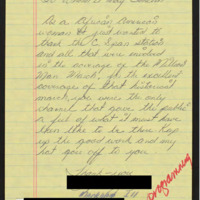 As a African American
woman I just wanted to
thank the C Span station
and all that were involved
in the coverage of the "Million
Man March", for the excellent
coverage of that historical
march, you were the only
channel that gave the public
a feel of what it must have
been like to be there. Keep
up the good work and my
hat goes off to you
programming